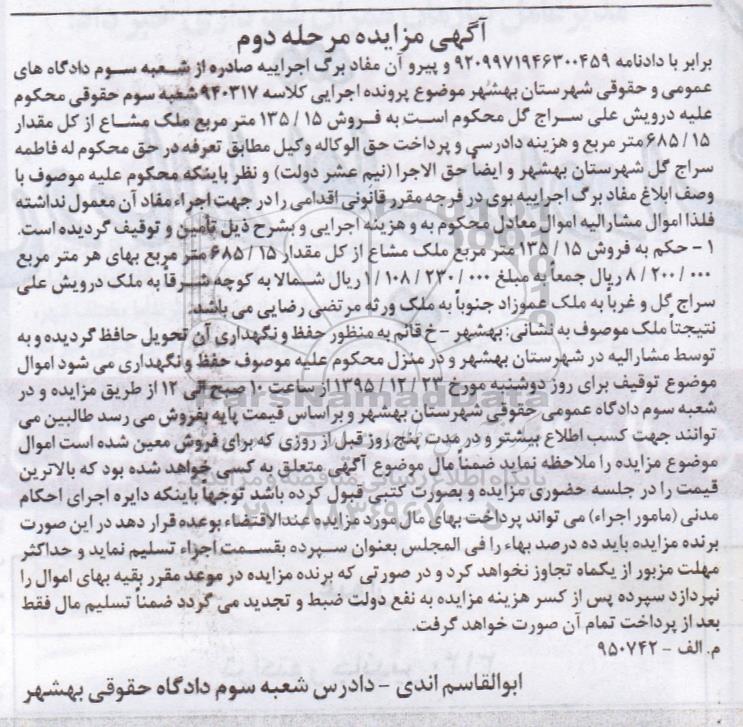 آگهی مزایده مرحله دوم
برابر با دادنامه ۹۲۰۹۹۷۱۹۴۶۳۰۰۴۵۹ و پیرو آن مفاد برگ اجراییه صادره از شعبه سوم دادگاه های
عمومی و حقوقی شهرستان بهشهر موضوع پرونده اجرایی کلاسه ۹۴۰۳۱۷ شعبه سوم حقوقی محکوم
علیه درویش علی سراج گل محکوم است به فروش ۱۳۵/۱۵ متر مربع ملک مشاع از کل مقدار
۶۸۵/۱۵ متر مربع و هزینه دادرسی و پرداخت حق الوکاله وکیل مطابق تعرفه در حق محکوم له فاطمه
سراج گل شهرستان بهشهر و ایضاً حق الاجرا (نیم عشر دولت) و نظر باینکه محکوم علیه موصوف با
وصف ابلاغ مفاد برگ اجراییه بوی در فرجه مقرر قانونی اقدامی را در جهت اجراء مفاد آن معمول نداشته
فلذا اموال مشارالیه اموال معادل محکوم به و هزینه اجرایی و بشرح ذیل تأمین و توقیف گردیده است.
۱- حکم به فروش ۱۳۵/۱۵ متر مربع ملک مشاع از کل مقدار ۶۸۵/۱۵ متر مربع بهای هر متر مربع
۸/۲۰۰/۰۰۰ ریال جمعاً به مبلغ ۱/۱۰۸/۲۳۰/۰۰۰ ریال شمالا به کوچه شرقاً به ملک درویش علی
سراج گل و غرباً به ملک عموزاد جنوباً به ملک ورثه مرتضی رضایی می باشد.
نتیجتاً ملک موصوف به نشانی: بهشهر - خ قائم به منظور حفظ و نگهداری آن تحویل حافظ گردیده و به
توسط مشارالیه در شهرستان بهشهر و در منزل محکوم علیه موصوف حفظ و نگهداری می شود اموال
موضوع توقیف برای روز دوشنبه مورخ ۱۳۹۵/۱۲/۲۳ از ساعت ۱۰ صبح الی ۱۲ از طریق مزایده و در
شعبه سوم دادگاه عمومی حقوقی شهرستان بهشهر و براساس قیمت پایه بفروش می رسد طالبین می
توانند جهت کسب اطلاع بیشتر و در مدت پنج روز قبل از روزی که برای فروش معین شده است اموال
موضوع مزایده را ملاحظه نماید ضمناً مال موضوع آگهی متعلق به کسی خواهد شده بود که بالاترین
قیمت را در جلسه حضوری مزایده و بصورت کتبی قبول کرده باشد توجها باینکه دایره اجرای احکام
مدنی (مامور اجراء) می تواند پرداخت بهای مال مورد مزایده عندالاقتضاء بوعده قرار دهد در این صورت
برنده مزایده باید ده درصد بهاء را فی المجلس بعنوان سپرده بقسمت اجراء تسلیم نماید و حداکثر
مهلت مزبور از یکماه تجاوز نخواهد کرد و در صورتی که برنده مزایده در موعد مقرر بقیه بهای اموال را
نپردازد سپرده پس از کسر هزینه مزایده به نفع دولت ضبط و تجدید می گردد ضمناً تسلیم مال فقط
بعد از پرداخت تمام آن صورت خواهد گرفت.
م. الف - ۹۵۰۷۴۲
ابوالقاسم اندی - دادرس شعبه سوم دادگاه حقوقی بهشهر
ParsNamadData
پایگاه اطلاع رسانی مناقصه و مزایده